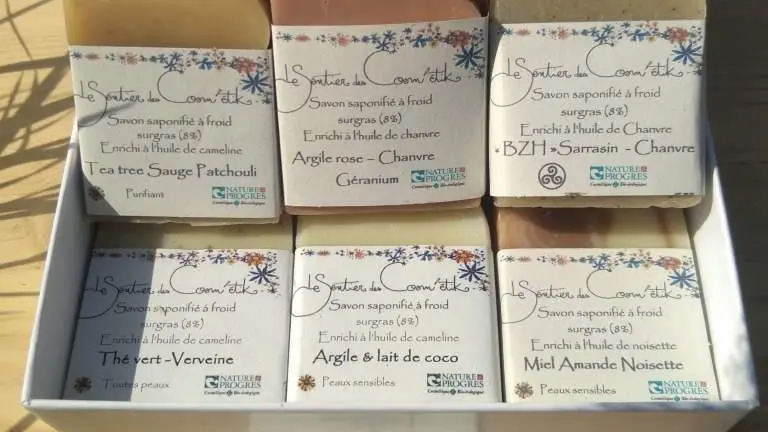 Le Sentier des Cosm'étik
Savon saponifié à froid
surgras (8%)
Enrichi à l'huile de cameline
Tea tree Sauge Patchouli
Purifiant
NATURE
PROGRES
Cosmétique Bio-écologique
Le Sentier des Cosm'étik
Savon saponifié à froid
surgras (8%)
Enrichi à l'huile de chanvre
Argile rose – Chanvre
Géranium
NATURE
PROGRES
Cosmétique Bio-écologique
Le Sentier des Cosm'étik
Savon saponifié à froid
surgras (8%)
Enrichi à l'huile de Chanvre
« BZH »Sarrasin - Chanvre
NATURE
PROGRES
Cosmétique Bio-écologique
Le Sentier des Cosm'étik
Savon saponifié à froid
surgras (8%)
Enrichi à l'huile de cameline
Thé vert -Verveine
Toutes peaux
NATURE
PROGRES
Cosmétique Bio-écologique
Le Sentier des Cosm'étik
Savon saponifié à froid
surgras (8%)
Enrichi à l'huile de cameline
Argile & lait de coco
Peaux sensibles
NATURE
PROGRES
Cosmétique Bio-écologique
Le Sentier des Cosm'étik
Savon saponifié à froid
surgras (8%)
Enrichi à l'huile de noisette
Miel Amande Noisette
Peaux sensibles
NATURE
PROGRES
Cosmétique Bio-écologique